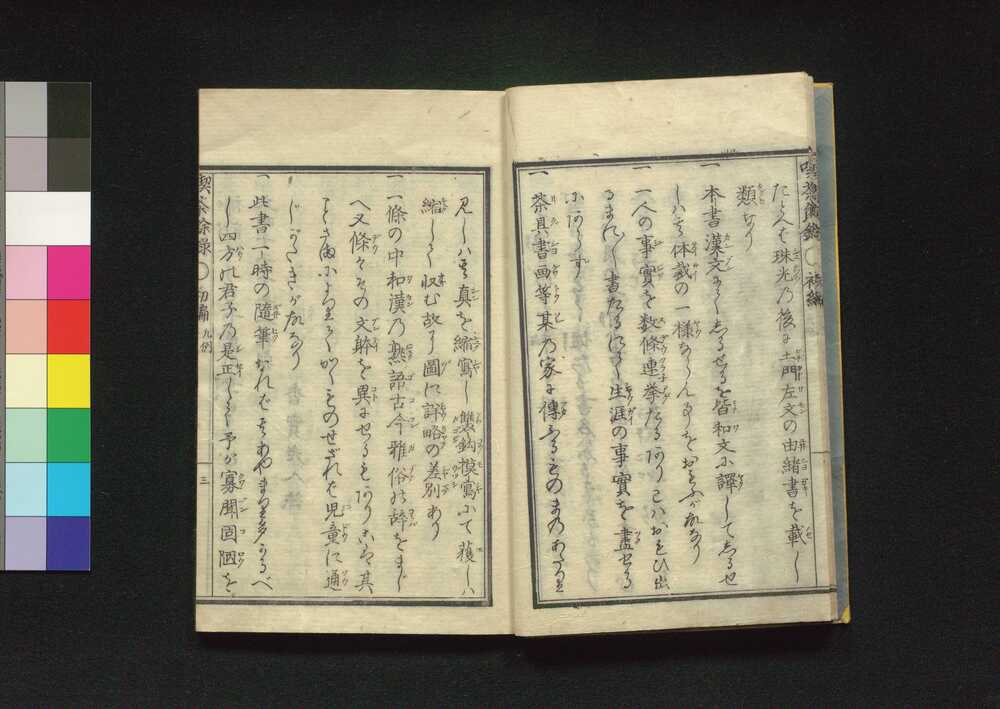 喫茶餘録 ○ 初編
たとへは珠光乃後に土門左文の由緒書を載し
類なり
一 本書漢文にてしるせるを皆和文に譯してしるせ
しハその体裁の一様ならんことをおもふが故なり
一 一人の事實を数條連挙たるあり こハおもひ出
るまに〳〵書たるにて生涯の事實を盡せる
にあらず
一 茶具書画等某乃家に傳ふるものまのあたり
見しハその真を縮寫し雙鈎模寫にて獲しハ
縮して収む故に圖に詳略の差別あり
一 一條の中和漢乃熟語古今雅俗の辞をまじ
へ又條々その文躰を異にせるもあり こハ其
ことさまによりてかくものせざれば児童に通
じがたきが故なり
一 此書一時の隨筆なれバそのあやまり多かるべ
し四方の君子乃是正して予が寡聞固陋を
喫茶餘録 ○ 初編 凡例
三